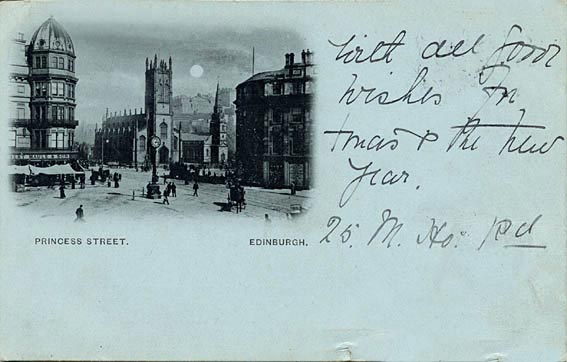 With all good
wishes for
Xmas & the New
Year.
25. M. Ho: Rd
MAULE & SON
PRINCESS STREET.
EDINBURGH.